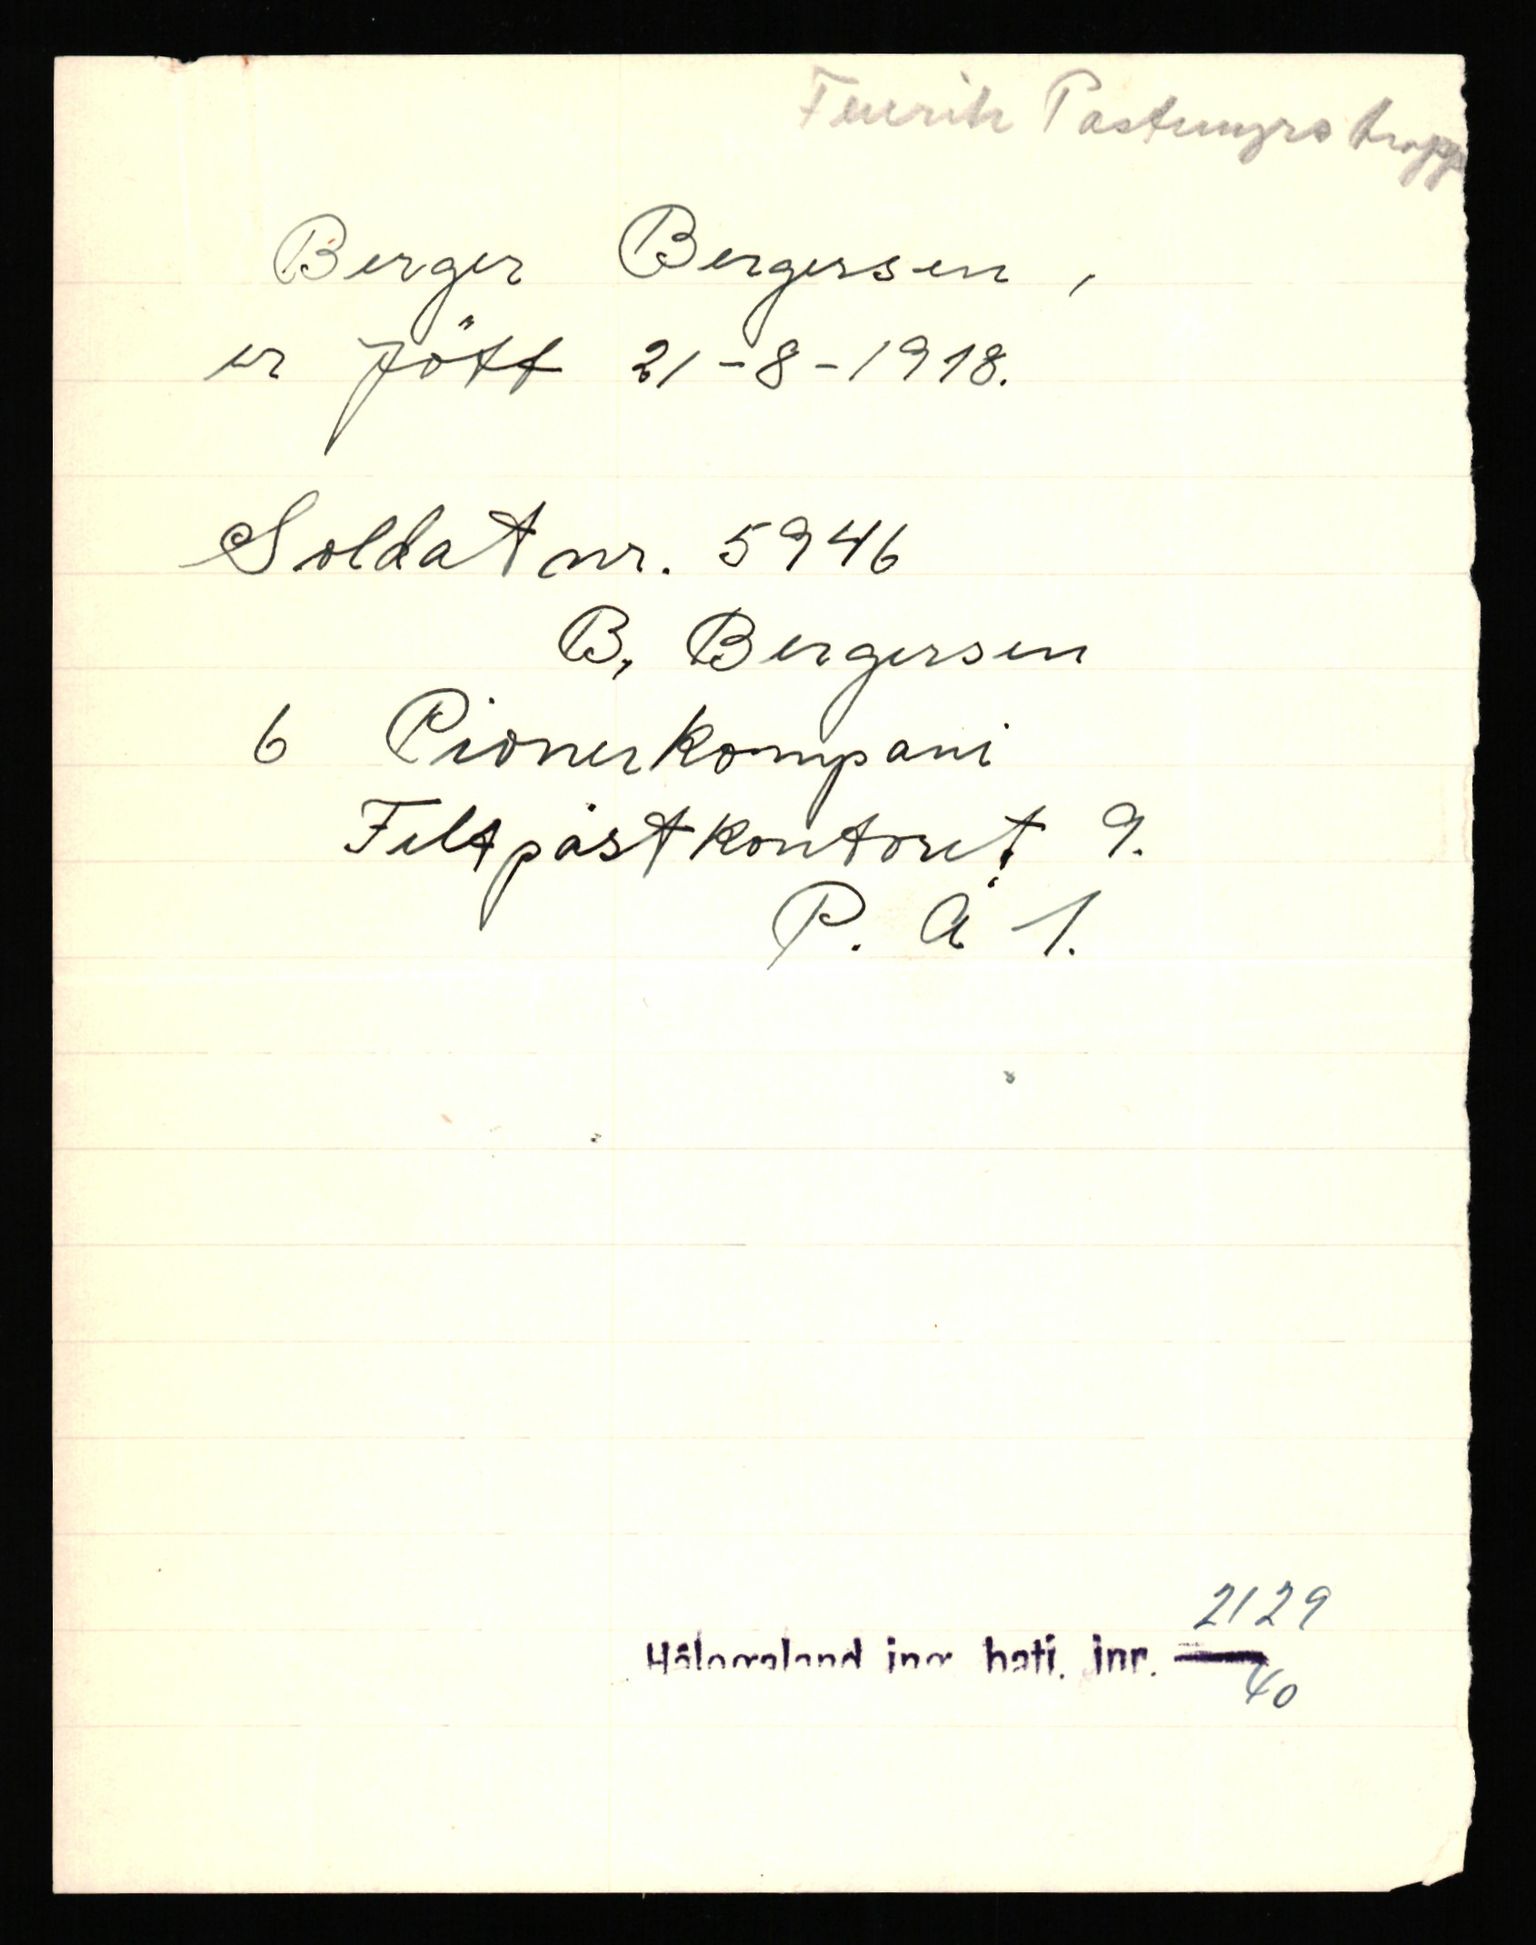 Fenrik Pastungs tropp
Berger Bergersen,
er fött 21-8-1918.
Soldat nr. 5946
B, Bergersen
6 Pionerkompani
Feltpåstkontoret 9.
P. Å 1.
2129
Hålogaland ingr. batj. jnr.
40